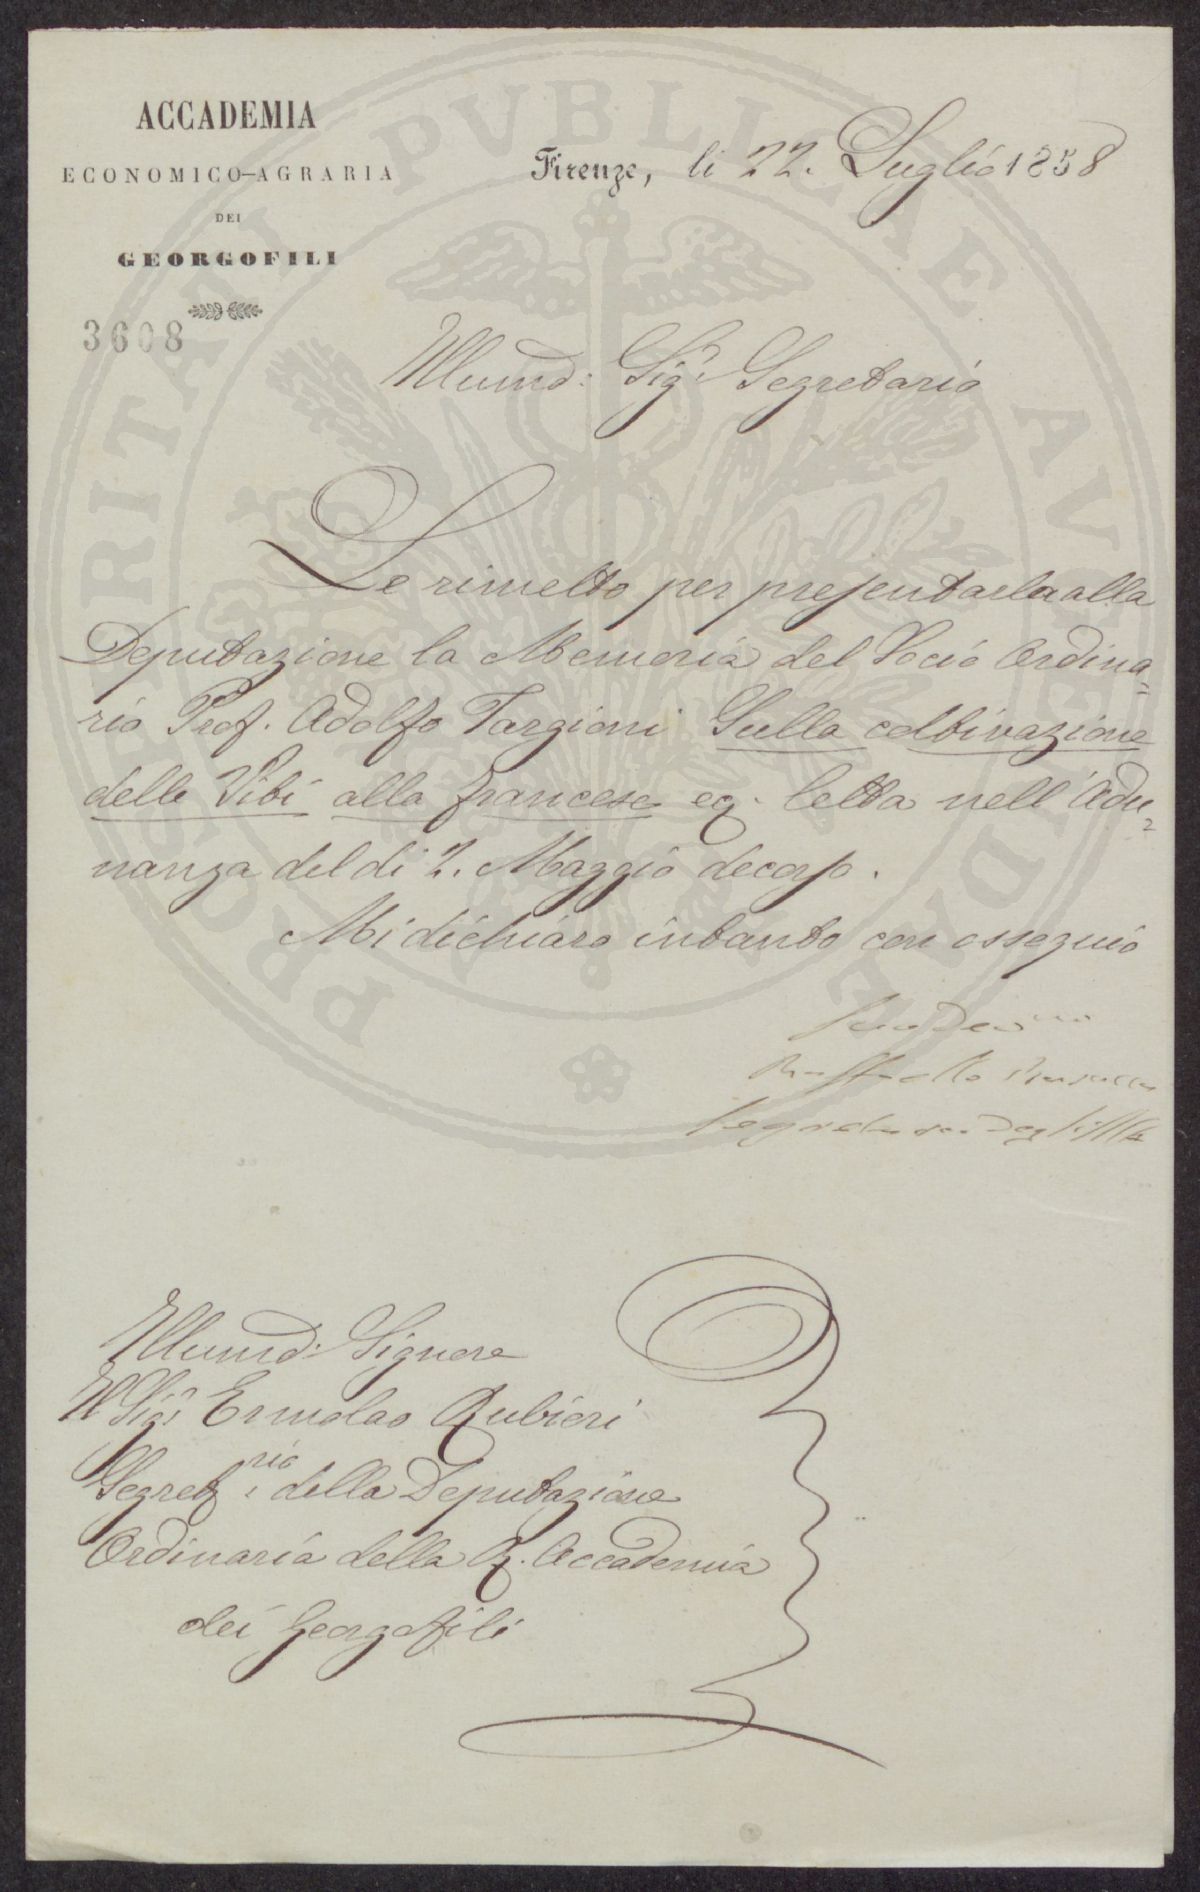 ACCADEMIA
ECONOMICO-AGRARIA
DEI
GEORGOFILI
3608
Firenze, li 22. Luglio 1858
Illumo: Sigr: Segretario
Le rimetto per presentarla alla
Deputazione la Memoria del Socio Ordina=
rio Prof. Adolfo Targioni Sulla coltivazione
delle Viti alla francese eq. letta nell'Adu=
nanza del di 2. Maggio decorso.
Mi dichiaro intanto con ossequio
Suo Devmo
Raffaello
Segretario degli Atti
Illumo: Signore
Il Sigr: Ermolao Rubieri
Segretrio. della Deputazione
Ordinaria della R. Accademia
dei Georgofili
PROSPERITATI PVBLICAE AVGENDAE